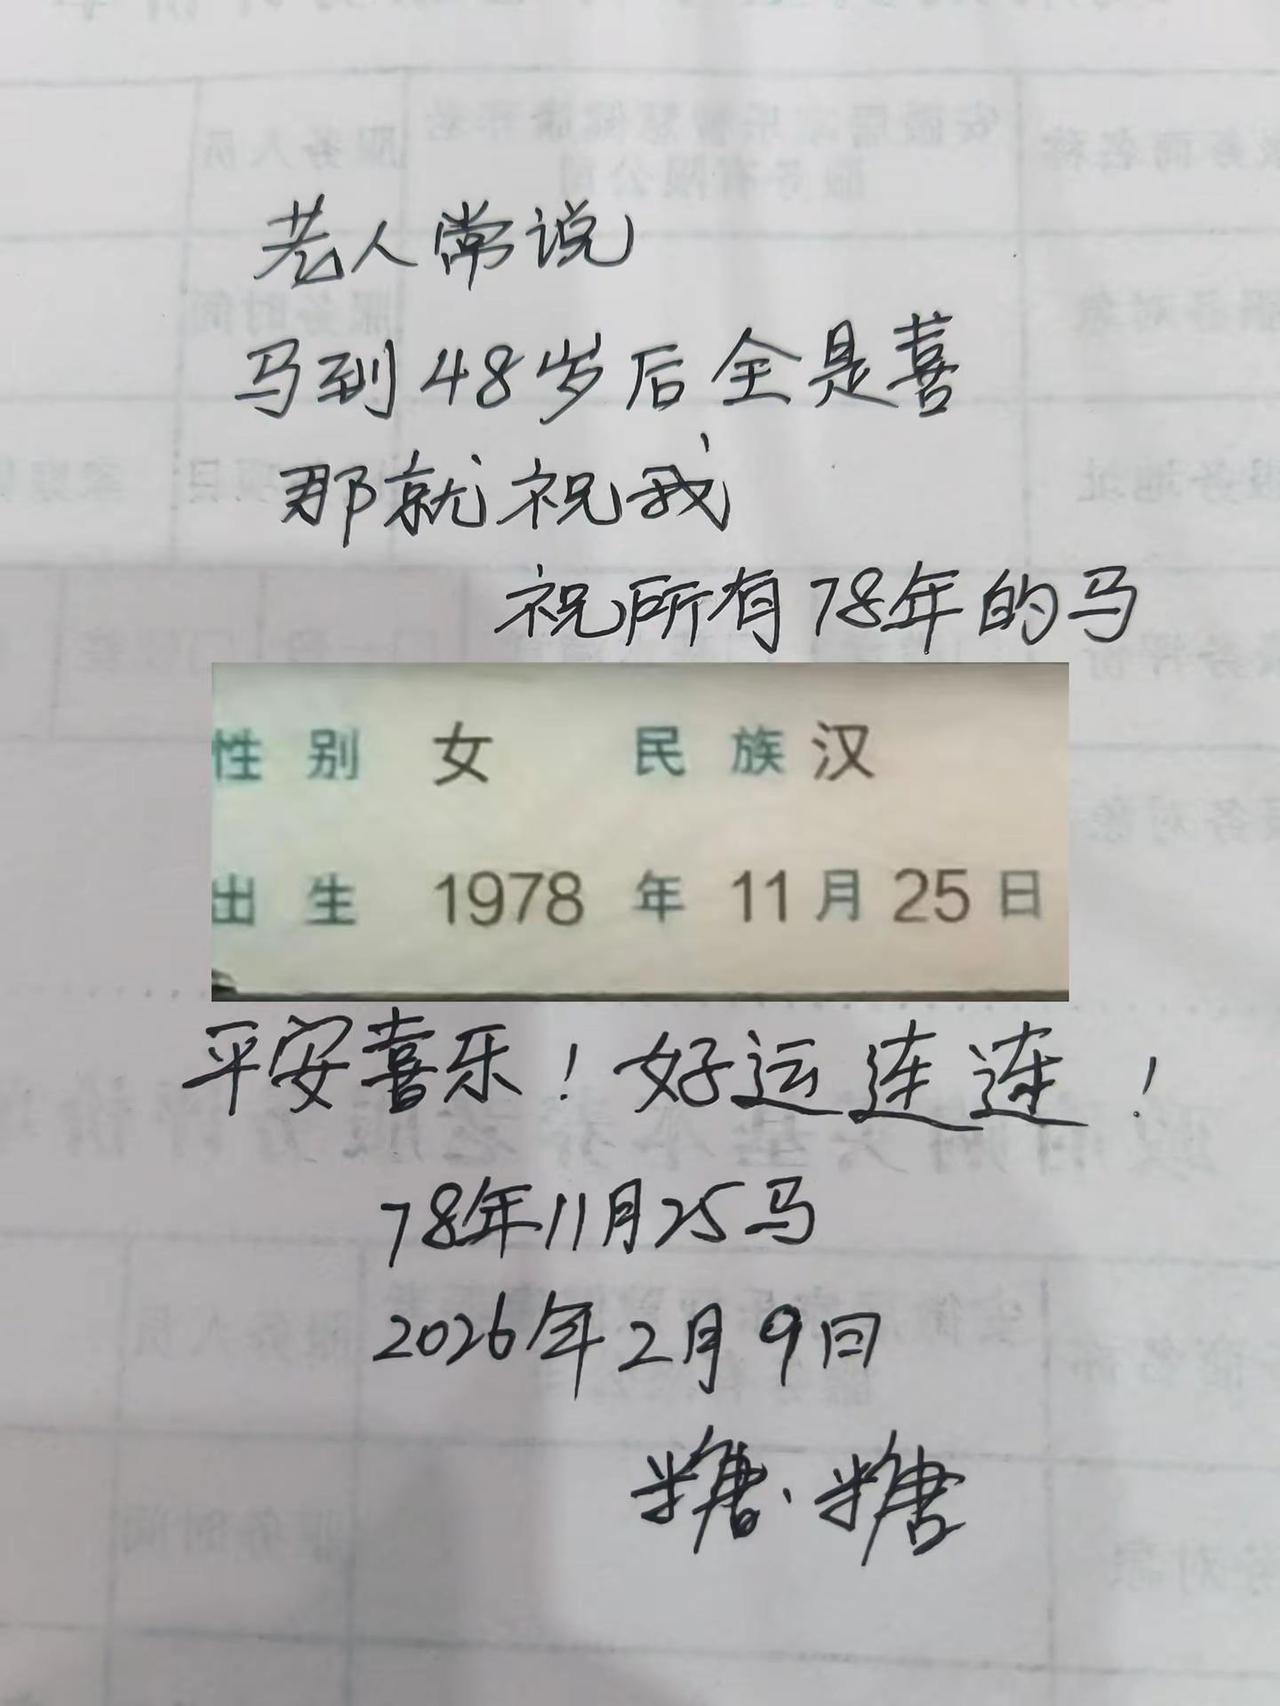 老人常说
马到48岁后全是喜
那就祝我
祝所有78年的马
性别 女 民族 汉
出生 1978 年 11 月 25 日
平安喜乐！好运连连！
78年11月25马
2026年2月9日
糖、糖